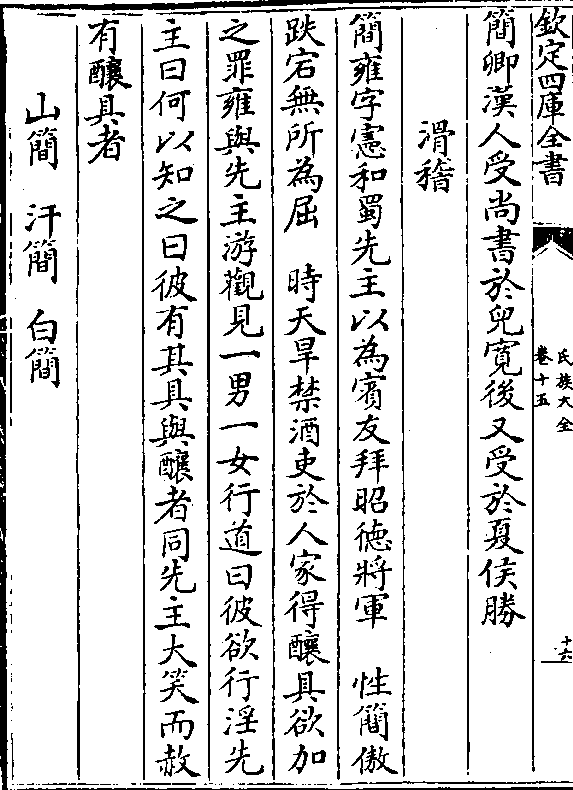 欽定四庫全書
氏族大全
卷十五
十六
簡卿漢人受尚書於兒寛後又受於夏侯勝
滑稽
簡雍字憲和蜀先主以為賓友拜昭德將軍　性簡傲
跌宕無所為屈　時天旱禁酒吏於人家得釀具欲加
之罪雍與先主游觀見一男一女行道曰彼欲行淫先
主曰何以知之曰彼有其具與釀者同先主大笑而赦
有釀具者
山簡　汗簡　白簡